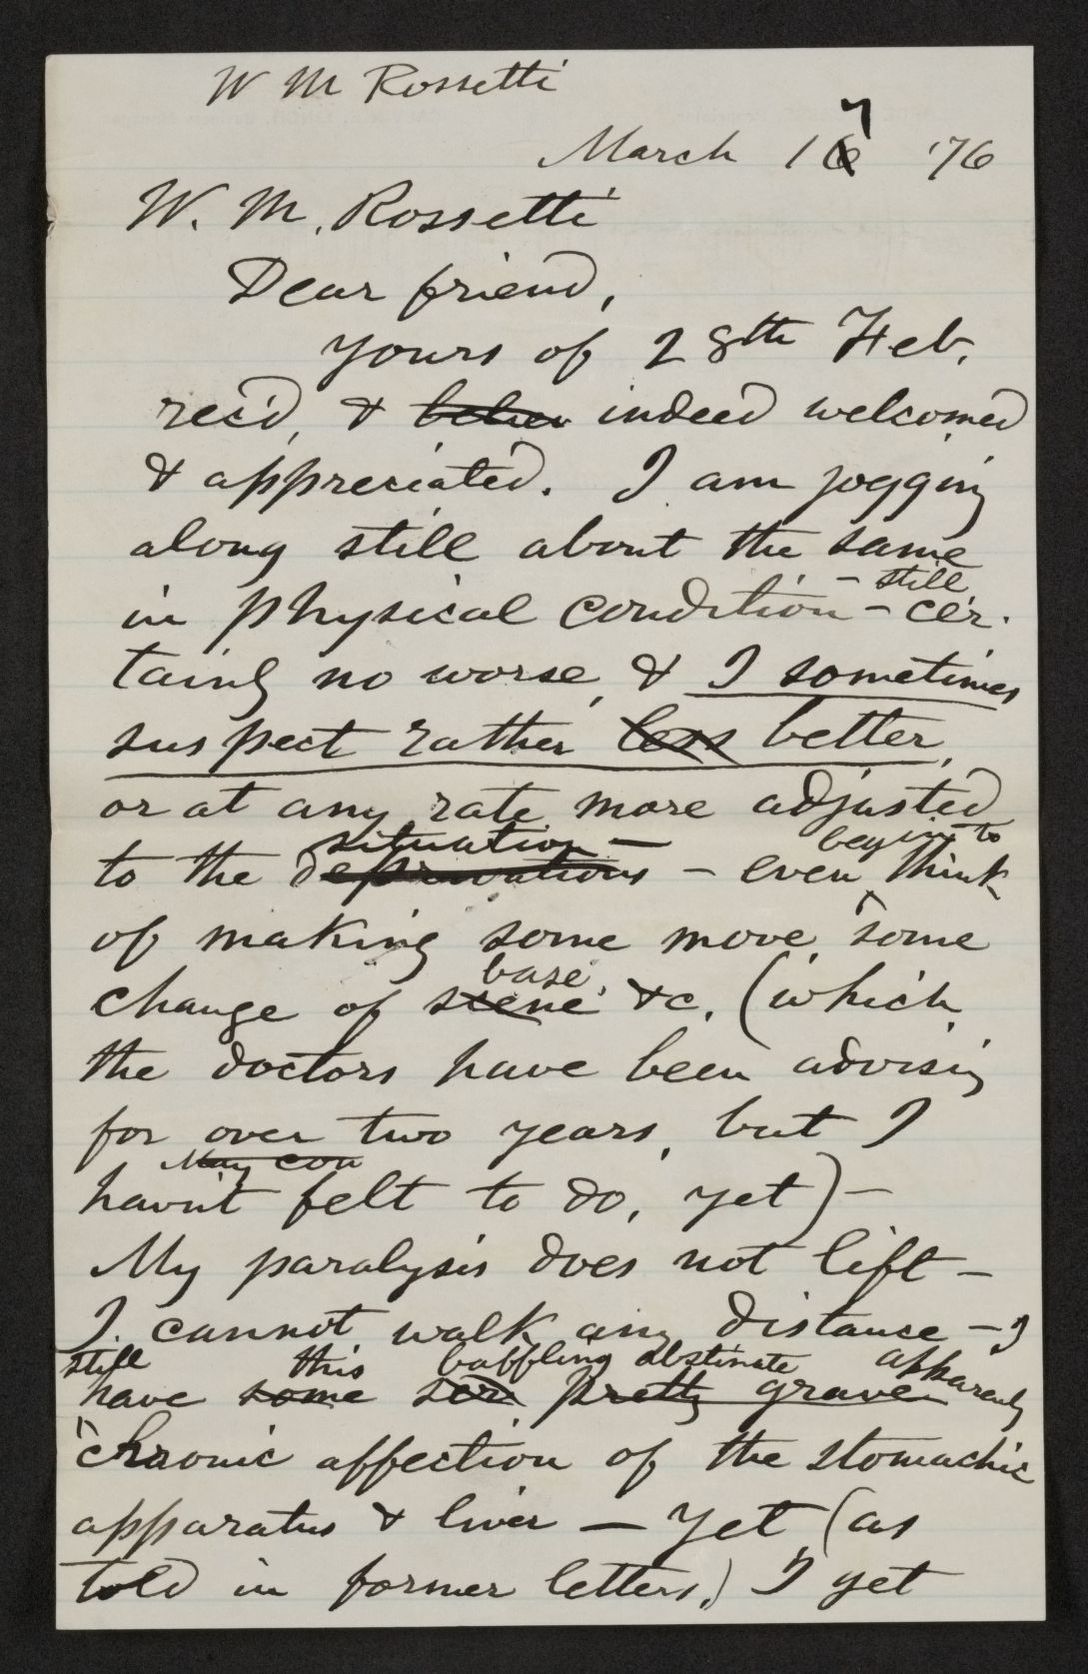 W M Rossetti
March 17 '76
W. M. Rossetti
Dear friend,
Yours of 28th Feb.
rec'd, & indeed welcomed
& appreciated. I am jogging
along still about the same
– still
in physical condition – cer-
tainly no worse, & I sometimes
suspect rather less better,
or at any rate more adjusted
situation – begin to
to the deprivations – even think
of making some move, some
base,
change of scene &c. (which
the doctors have been advising
for over two years, but I
May con
hav'nt felt to do, yet) –
My paralysis does not lift –
I cannot walk any distance – I
still this baffling obstinate apparently
have some ser pretty grave
chronic affection of the stomachic
apparatus & liver – yet (as
told in former letters,) I yet